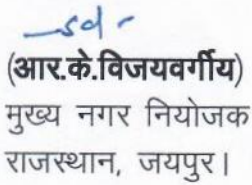 sd-
(आर.के.विजयवर्गीय)
मुख्य नगर नियोजक
राजस्थान, जयपुर।